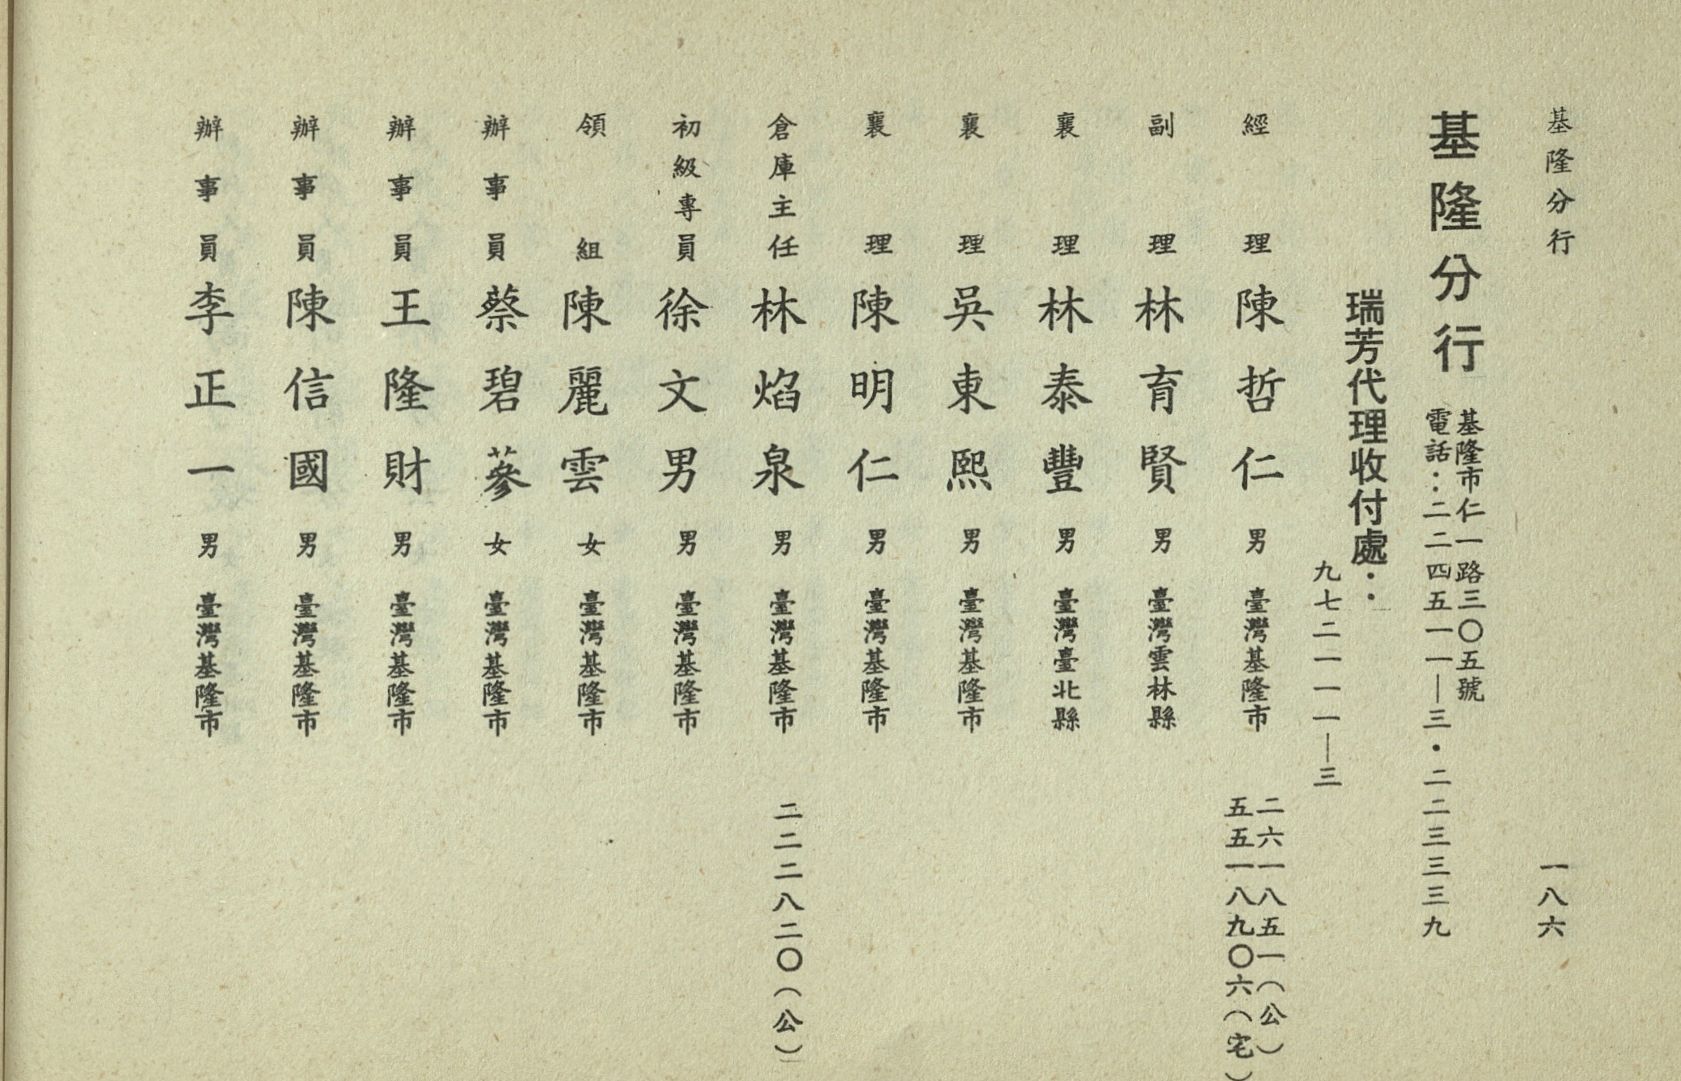 基隆分行
一八六
基隆分行
基隆市仁一路三〇五號
電話：二二四五一一—三・二二三三三九
瑞芳代理收付處：
九七二一一一—三
經理 陳哲仁 男 臺灣基隆市 二六一八五一（公）
五五一八九〇六（宅）
副理 林育賢 男 臺灣雲林縣
襄理 林泰豐 男 臺灣臺北縣
襄理 吳東熙 男 臺灣基隆市
襄理 陳明仁 男 臺灣基隆市
倉庫主任 林焰泉 男 臺灣基隆市 二二二八二〇（公）
初級專員 徐文男 男 臺灣基隆市
領組 陳麗雲 女 臺灣基隆市
辦事員 蔡碧蔘 女 臺灣基隆市
辦事員 王隆財 男 臺灣基隆市
辦事員 陳信國 男 臺灣基隆市
辦事員 李正一 男 臺灣基隆市